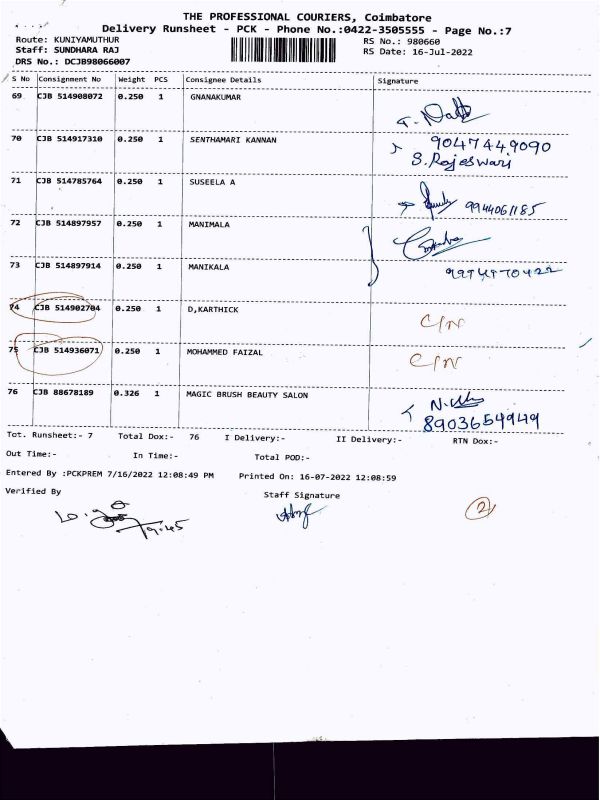 THE PROFESSIONAL COURIERS, Coimbatore
Delivery Runsheet - PCK - Phone No.:0422-3505555 - Page No.:7
Route: KUNIYAMUTHUR RS No.: 980660
Staff: SUNDHARA RAJ RS Date: 16-Jul-2022
DRS No.: DCJB98066007
S No Consignment No Weight PCS Consignee Details Signature
69 CJB 514908072 0.250 1 GNANAKUMAR
70 CJB 514917310 0.250 1 SENTHAMARI KANNAN 9047449090
S. Rajeswari
71 CJB 514785764 0.250 1 SUSEELA A
9944061185
72 CJB 514897957 0.250 1 MANIMALA
73 CJB 514897914 0.250 1 MANIKALA
74 CJB 514902704 0.250 1 D,KARTHICK
C/N
75 CJB 514936071 0.250 1 MOHAMMED FAIZAL
C/N
76 CJB 88678189 0.326 1 MAGIC BRUSH BEAUTY SALON
8903654949
Tot. Runsheet:- 7 Total Dox:- 76 I Delivery:- II Delivery:- RTN Dox:-
Out Time:- In Time:- Total POD:-
Entered By :PCKPREM 7/16/2022 12:08:49 PM Printed On: 16-07-2022 12:08:59
Verified By Staff Signature
2